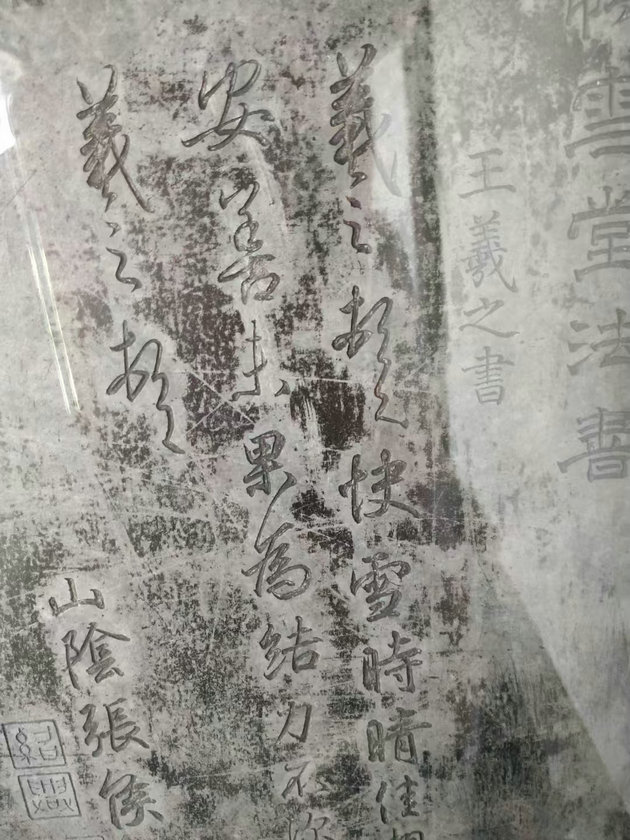 雪堂法書
王羲之書
羲之頓快雪時晴佳
安善未果為結力不次
羲之頓
山陰張侯
紹興